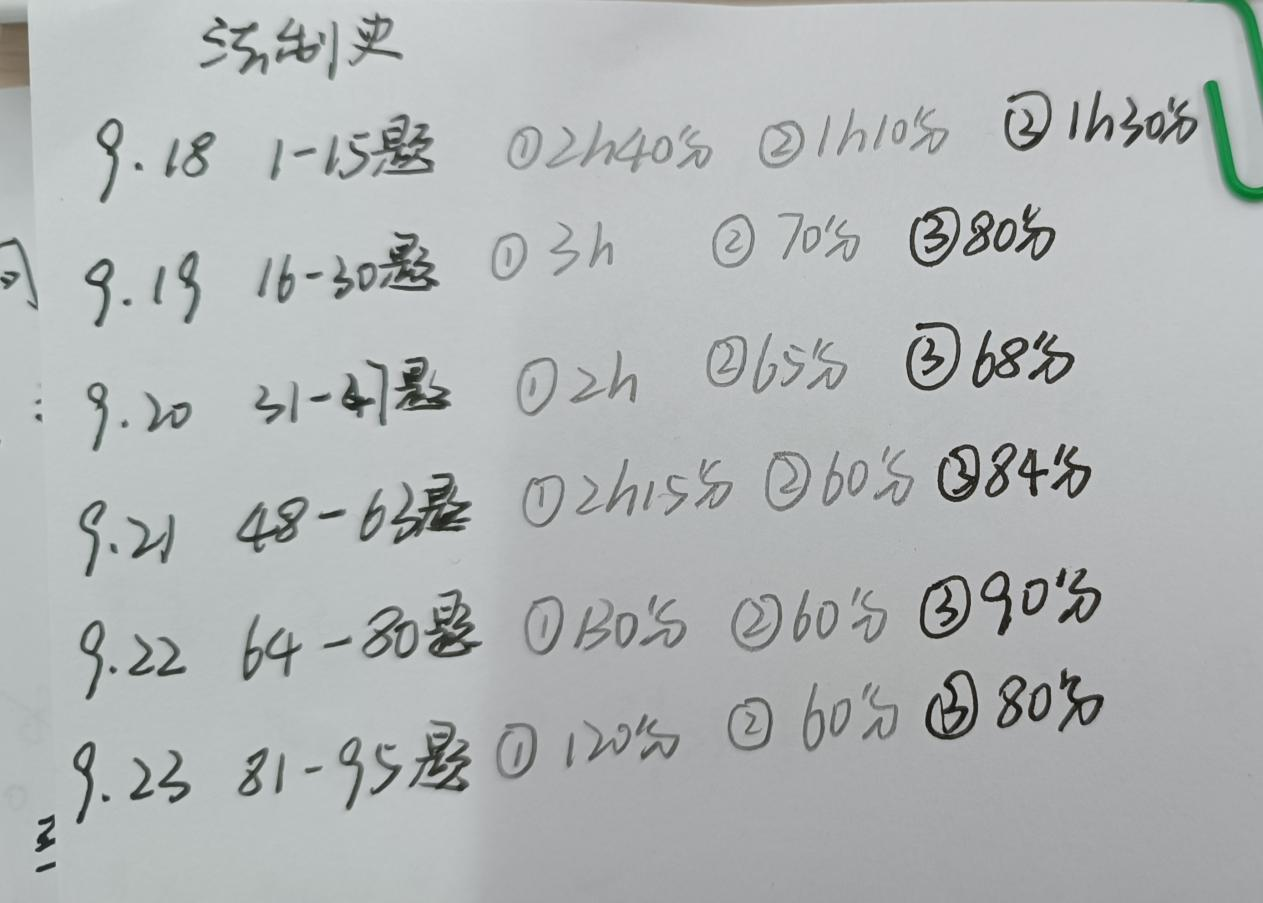 法制史
9.18 1-15题 ①2h40分 ②1h10分 ③1h30分
9.19 16-30题 ①3h ②70分 ③80分
9.20 31-47题 ①2h ②65分 ③68分
9.21 48-63题 ①2h15分 ②60分 ③84分
9.22 64-80题 ①130分 ②60分 ③90分
9.23 81-95题 ①120分 ②60分 ③80分